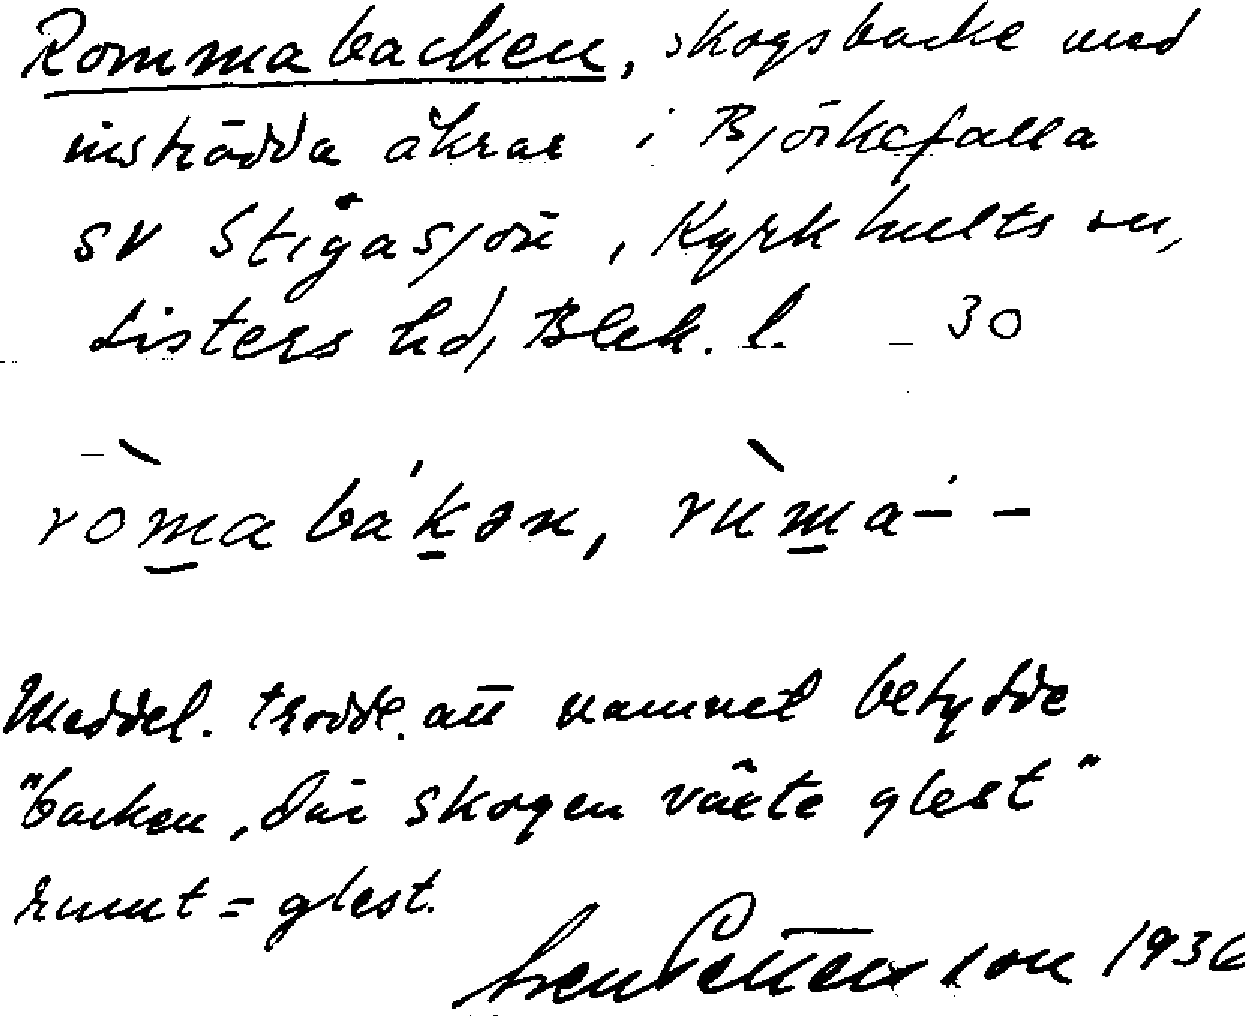 Rommabacken, skogsbacke med
inströdda åkrar i Björkefalla
SV Stigåsjön, Kyrkhults sn,
Listers hd, Blek. l. _ 30
ròmabákən, rùma- -
Meddel. trodde att namnet betydde
"backen, där skogen växte glest"
rumt = glest.
Sven Pettersson 1936